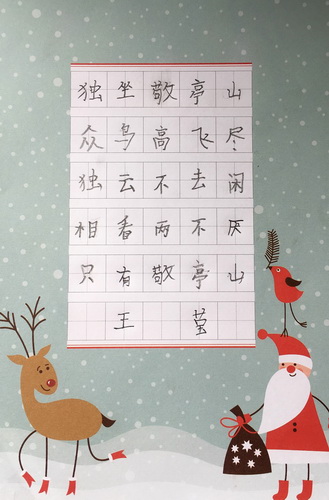 独坐敬亭山
众鸟高飞尽
独云不去闲
相看两不厌
只有敬亭山
王莹